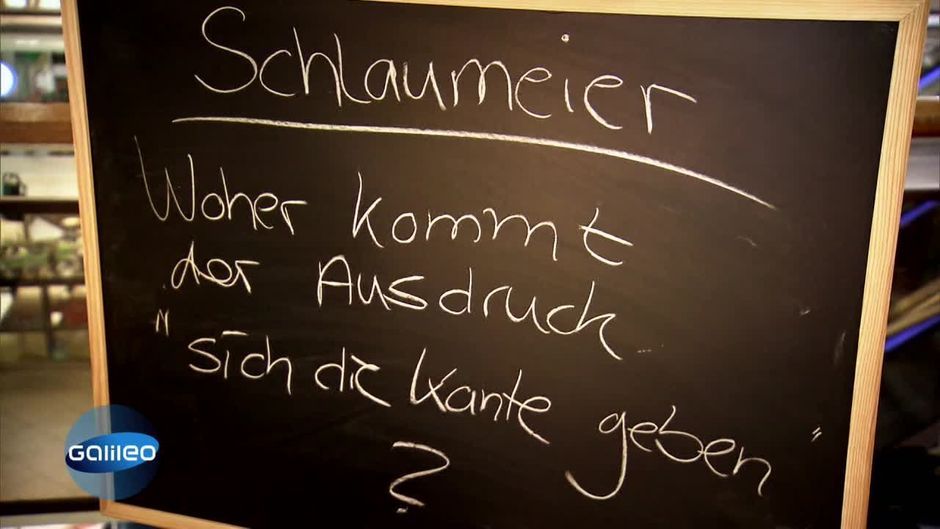 Schlaumeier
Woher kommt
der Ausdruck
"sich die Kante geben"
?
Galileo